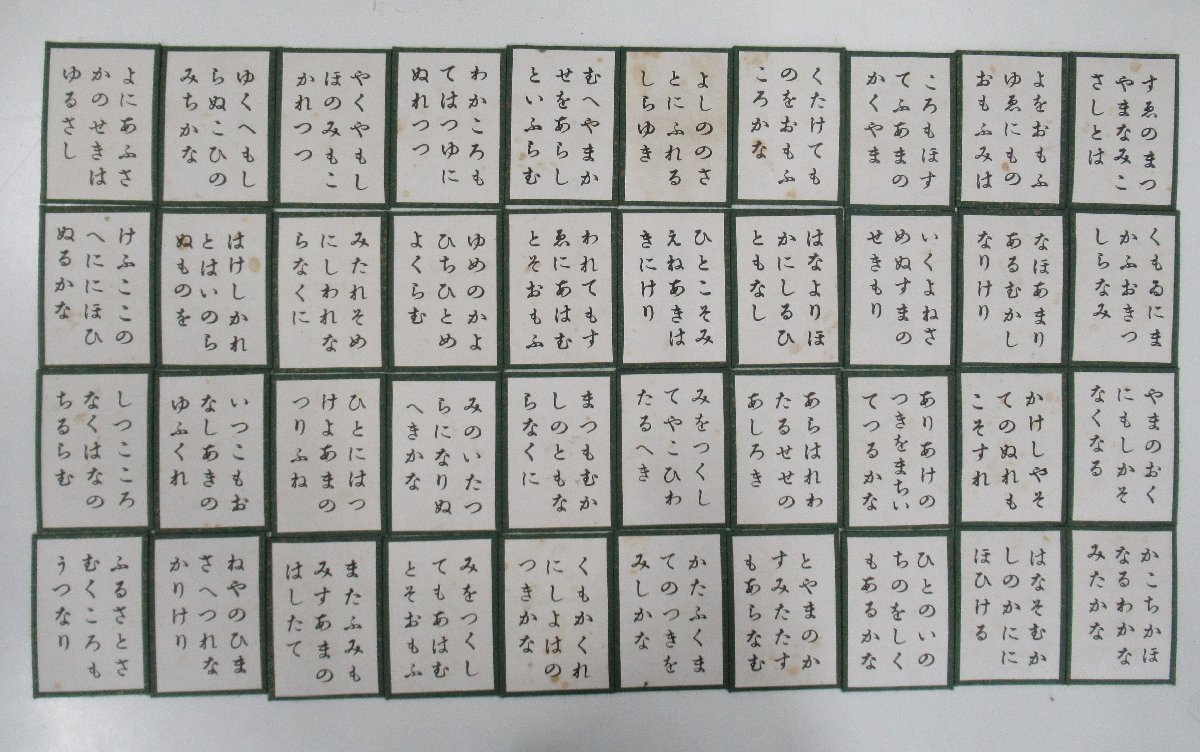 すゑのまつ
やまなみこ
さしとは
よをおもふ
ゆゑにもの
おもふみは
ころもほす
てふあまの
かくやま
くたけても
のをおもふ
ころかな
よしののさ
とにふれる
しらゆき
むへやまか
せをあらし
といふらむ
わかころも
てはつゆに
ぬれつつ
やくやもし
ほのみもこ
かれつつ
ゆくへもし
らぬこひの
みちかな
よにあふさ
かのせきは
ゆるさし
くもゐにま
かふおきつ
しらなみ
なほあまり
あるむかし
なりけり
いくよねさ
めぬすまの
せきもり
はなよりほ
かにしるひ
ともなし
ひとこそみ
えねあきは
きにけり
われてもす
ゑにあはむ
とそおもふ
ゆめのかよ
ひちひとめ
よくらむ
みたれそめ
にしわれな
らなくに
はけしかれ
とはいのら
ぬものを
けふここの
へににほひ
ぬるかな
やまのおく
にもしかそ
なくなる
かけしやそ
てのぬれも
こそすれ
ありあけの
つきをまちい
てつるかな
あらはれわ
たるせせの
あしろき
みをつくし
てやこひわ
たるへき
まつもむか
しのともな
らなくに
みのいたつ
らになりぬ
へきかな
ひとにはつ
けよあまの
つりふね
いつこもお
なしあきの
ゆふくれ
しつこころ
なくはなの
ちるらむ
かこちかほ
なるわかな
みたかな
はなそむか
しのかにに
ほひける
ひとのいの
ちのをしく
もあるかな
とやまのか
すみたたす
もあらなむ
かたふくま
てのつきを
みしかな
くもかくれ
にしよはの
つきかな
みをつくし
てもあはむ
とそおもふ
またふみも
みすあまの
はしたて
ねやのひま
さへつれな
かりけり
ふるさとさ
むくころも
うつなり